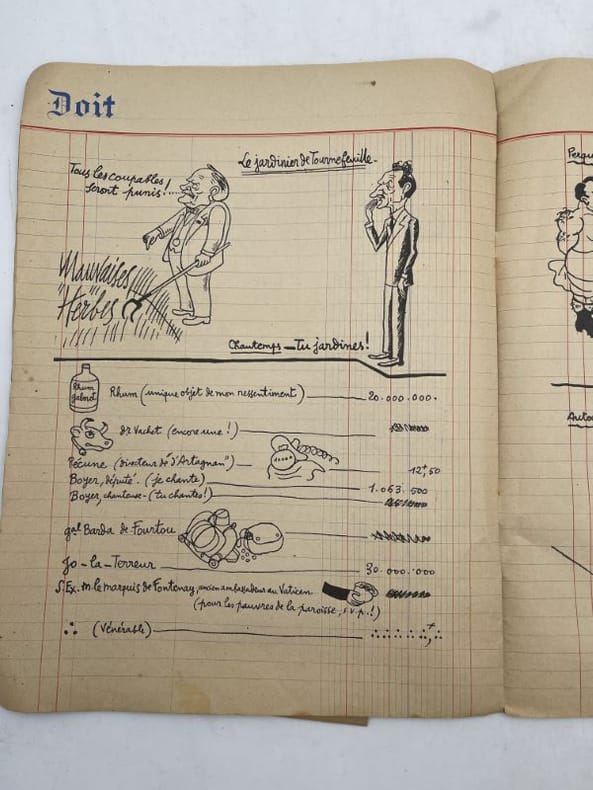 Doit
Le jardinier de Tournefeuille.
Tous les coupables
seront punis!...
Mauvaises
Herbes
Chautemps — Tu jardines!
Rhum
Rhum (unique objet de mon ressentiment) 20.000.000.
dr Vachet (encore une!)
Pécune (directeur de "d'Artagnan") 12f,50
Boyer, député. (je chante) 1.063.500
Boyer, chanteuse. (tu chantes!)
gal Barda de Fourtou
Jo-la-Terreur 30.000.000
S.Ex. M. le Marquis de Fontenay, ancien ambassadeur au Vatican
(pour les pauvres de la paroisse, s.v.p.!)
∴ (Vénérable)